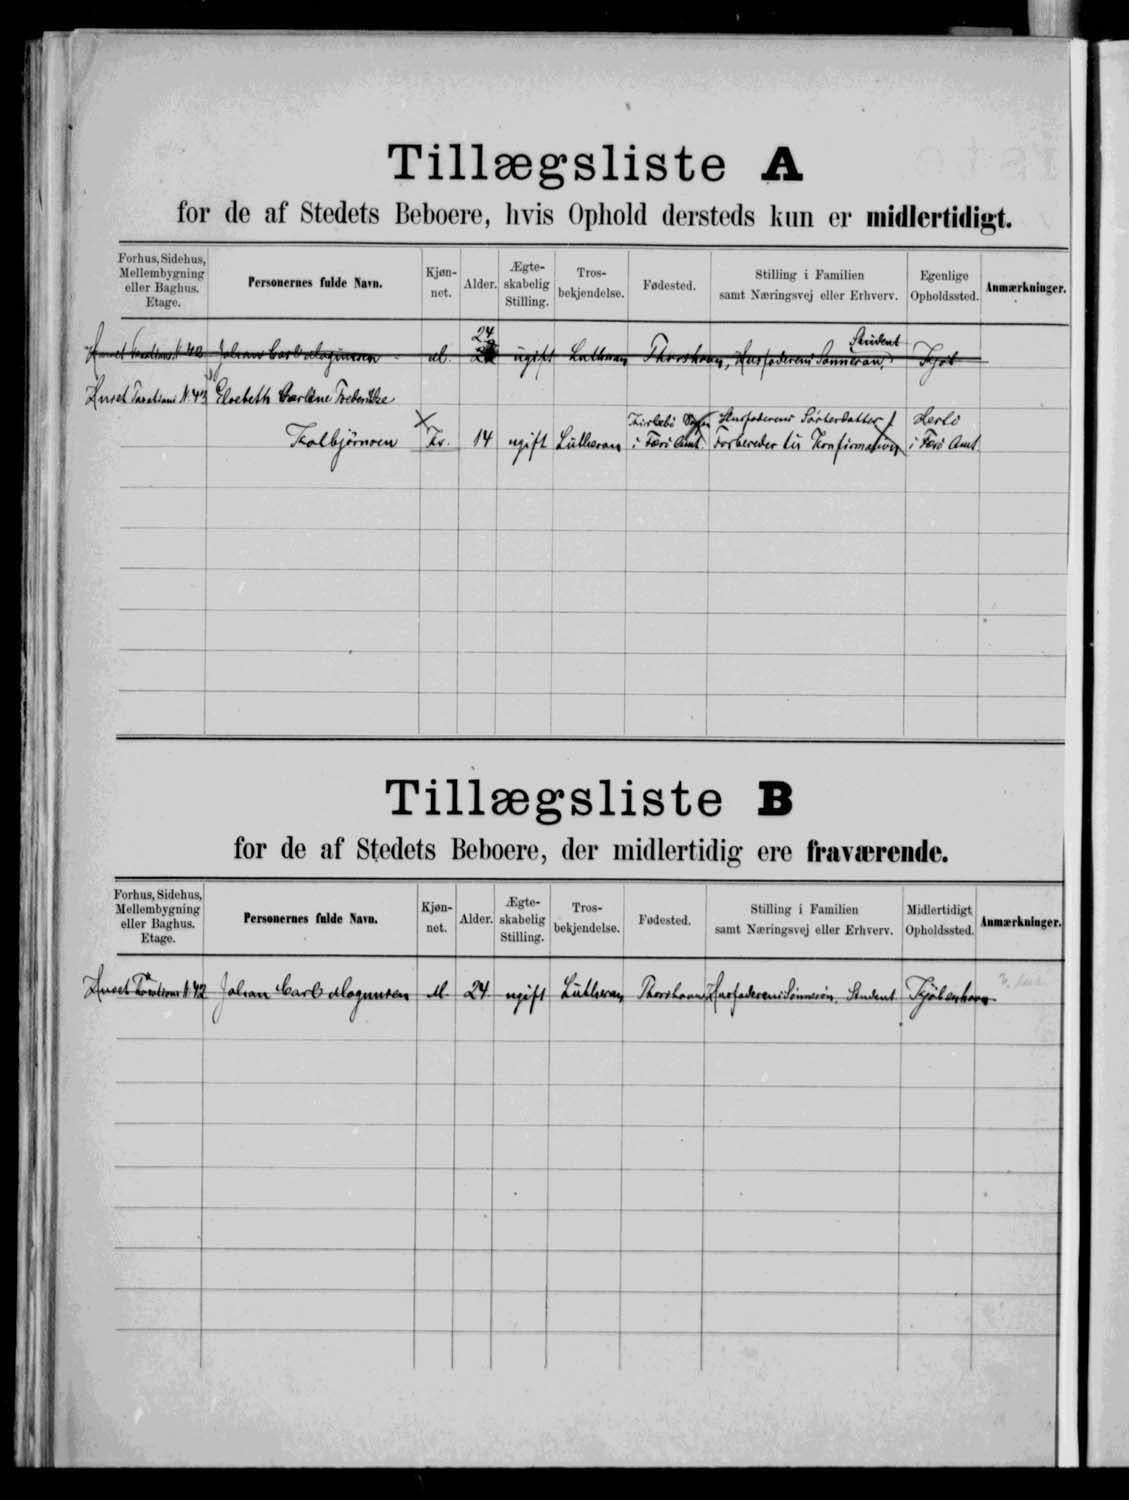 Tillægsliste A
for de af Stedets Beboere, hvis Ophold dersteds kun er midlertidigt.
Forhus, Sidehus, Mellembygning eller Baghus. Etage.
Personernes fulde Navn.
Kjøn-net.
Alder.
Ægte-skabelig Stilling.
Tros-bekjendelse.
Fødested.
Stilling i Familien samt Næringsvej eller Erhverv.
Egenlige Opholdssted.
Anmærkninger.
24 Student
Huset Taxations N. 42 Johan Carl Magnussen M. ugift Lutheran Thorshavn, Husfaderens Sønnesøn, Kjøb
Huset Taxations N. 43 Elsebeth Carline Frederikke
Kirkebö Sogn Husfaderens Søsterdatter
Kolbjørnsen Kv. 14 ugift Lutheran i Færö Amt. Forbereder til Konfirmation i Færö Amt.
Tillægsliste B
for de af Stedets Beboere, der midlertidig ere fraværende.
Forhus, Sidehus, Mellembygning eller Baghus. Etage.
Personernes fulde Navn.
Kjøn-net.
Alder.
Ægte-skabelig Stilling.
Tros-bekjendelse.
Fødested.
Stilling i Familien samt Næringsvej eller Erhverv.
Midlertidigt Opholdssted.
Anmærkninger.
Huset Taxations N. 42 Johan Carl Magnussen M. 24 ugift Lutheran Thorshavn Husfaderens Sønnesøn, Student Kjøbenhavn